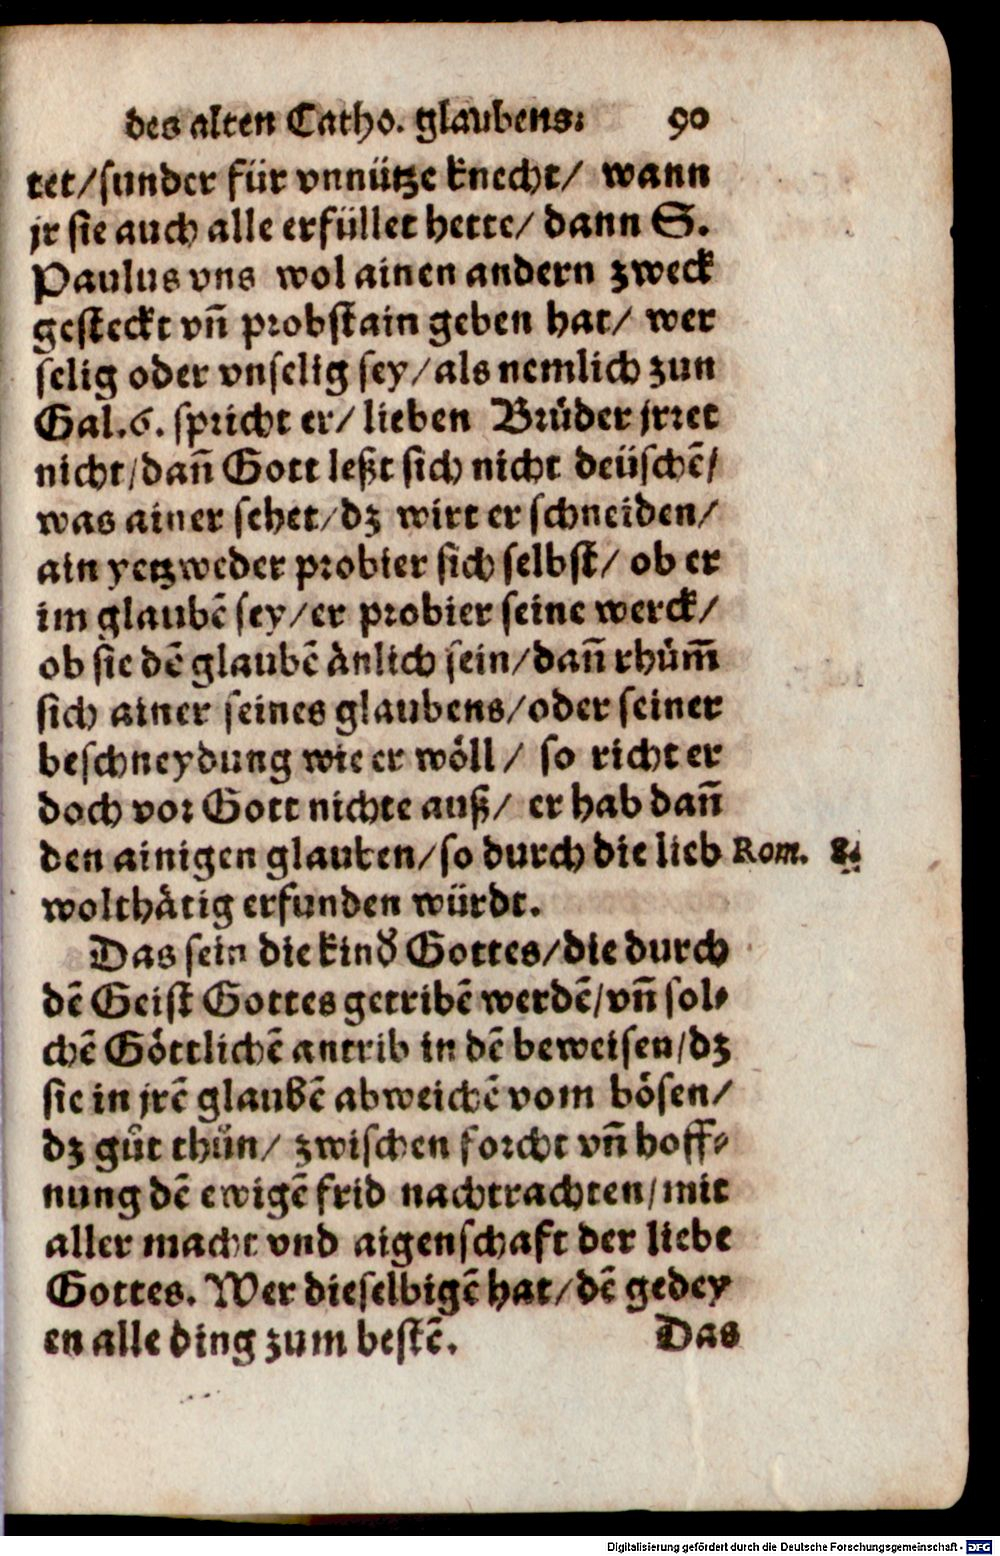 des alten Catho. glaubens: 90
tet/sunder für vnnütze knecht/ wann
jr sie auch alle erfüllet hette/ dann S.
Paulus vns wol ainen andern zweck
gesteckt vn̄ probstain geben hat/ wer
selig oder vnselig sey/als nemlich zun
Gal.6. spricht er/ lieben Brüder jrret
nicht/dan̄ Gott leßt sich nicht deüschē/
was ainer sehet/dz wirt er schneiden/
ain yetzweder probier sich selbst/ ob er
im glaubē sey/er probier seine werck/
ob sie dē glaubē änlich sein/dan̄ rhům̄
sich ainer seines glaubens/oder seiner
beschneydung wie er wöll/ so richt er
doch vor Gott nichte auß/ er hab dan̄
den ainigen glauben/so durch die lieb Rom. 8.
wolthätig erfunden würdt.
Das sein die kind Gottes/die durch
dē Geist Gottes getribē werdē/vn̄ sol-
chē Göttlichē antrib in dē beweisen/dz
sie in jrē glaubē abweichē vom bösen/
dz gůt thůn/ zwischen forcht vn̄ hoff-
nung dē ewigē frid nachtrachten/mit
aller macht vnd aigenschaft der liebe
Gottes. Wer dieselbigē hat/dē gedey
en alle ding zum bestē. Das
Digitalisierung gefördert durch die Deutsche Forschungsgemeinschaft - DFG